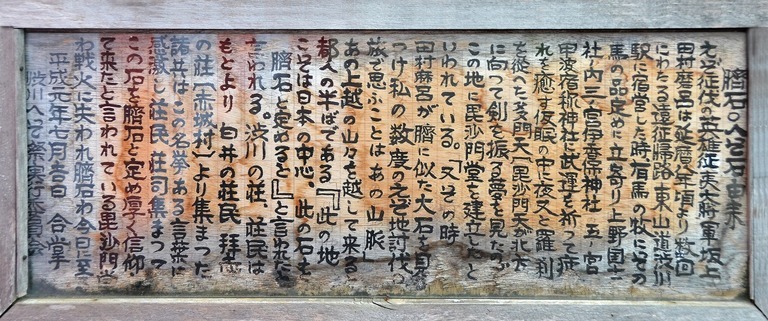 臍石のへそ石由来
えぞ征伐の英雄征夷大将軍坂上
田村磨呂は延暦八年頃より数回
にわたる遠征帰路東山道渋川
駅に宿営した時有馬の牧にその
馬の品定めに立寄り上野国十二
社ノ内三ノ宮伊香保神社 五ノ宮
甲波宿祢神社に武運を祈って疲
れを癒す仮眠の中夜叉と羅刹
を従へた多門天(毘沙門天)が北方
に向って剣を振る夢を見たので
この地に毘沙門堂を建立したと
いわれている。又その時
田村麻呂が臍に似た大石を自
つけ私の数度のえぞ地討伐の
旅で思ふことはあの山脈、
あの上越の山々を越して来ると
都への半ばである『此の地
こそは日本の中心、此の石を
臍石と定めると』と言われた
言われる。渋川の荘、荘民は
もとより 白井の荘民 拝志
の荘(赤城村)より集まった
諸共はこの名誉ある言葉に
感激し荘民 荘司集まって
この石を臍石と定め厚く信仰
て来たと言われている毘沙門堂
わ戦火に失われ臍石わ今日に至
平成元年七月吉日 合掌
渋川へそ祭実行委員会